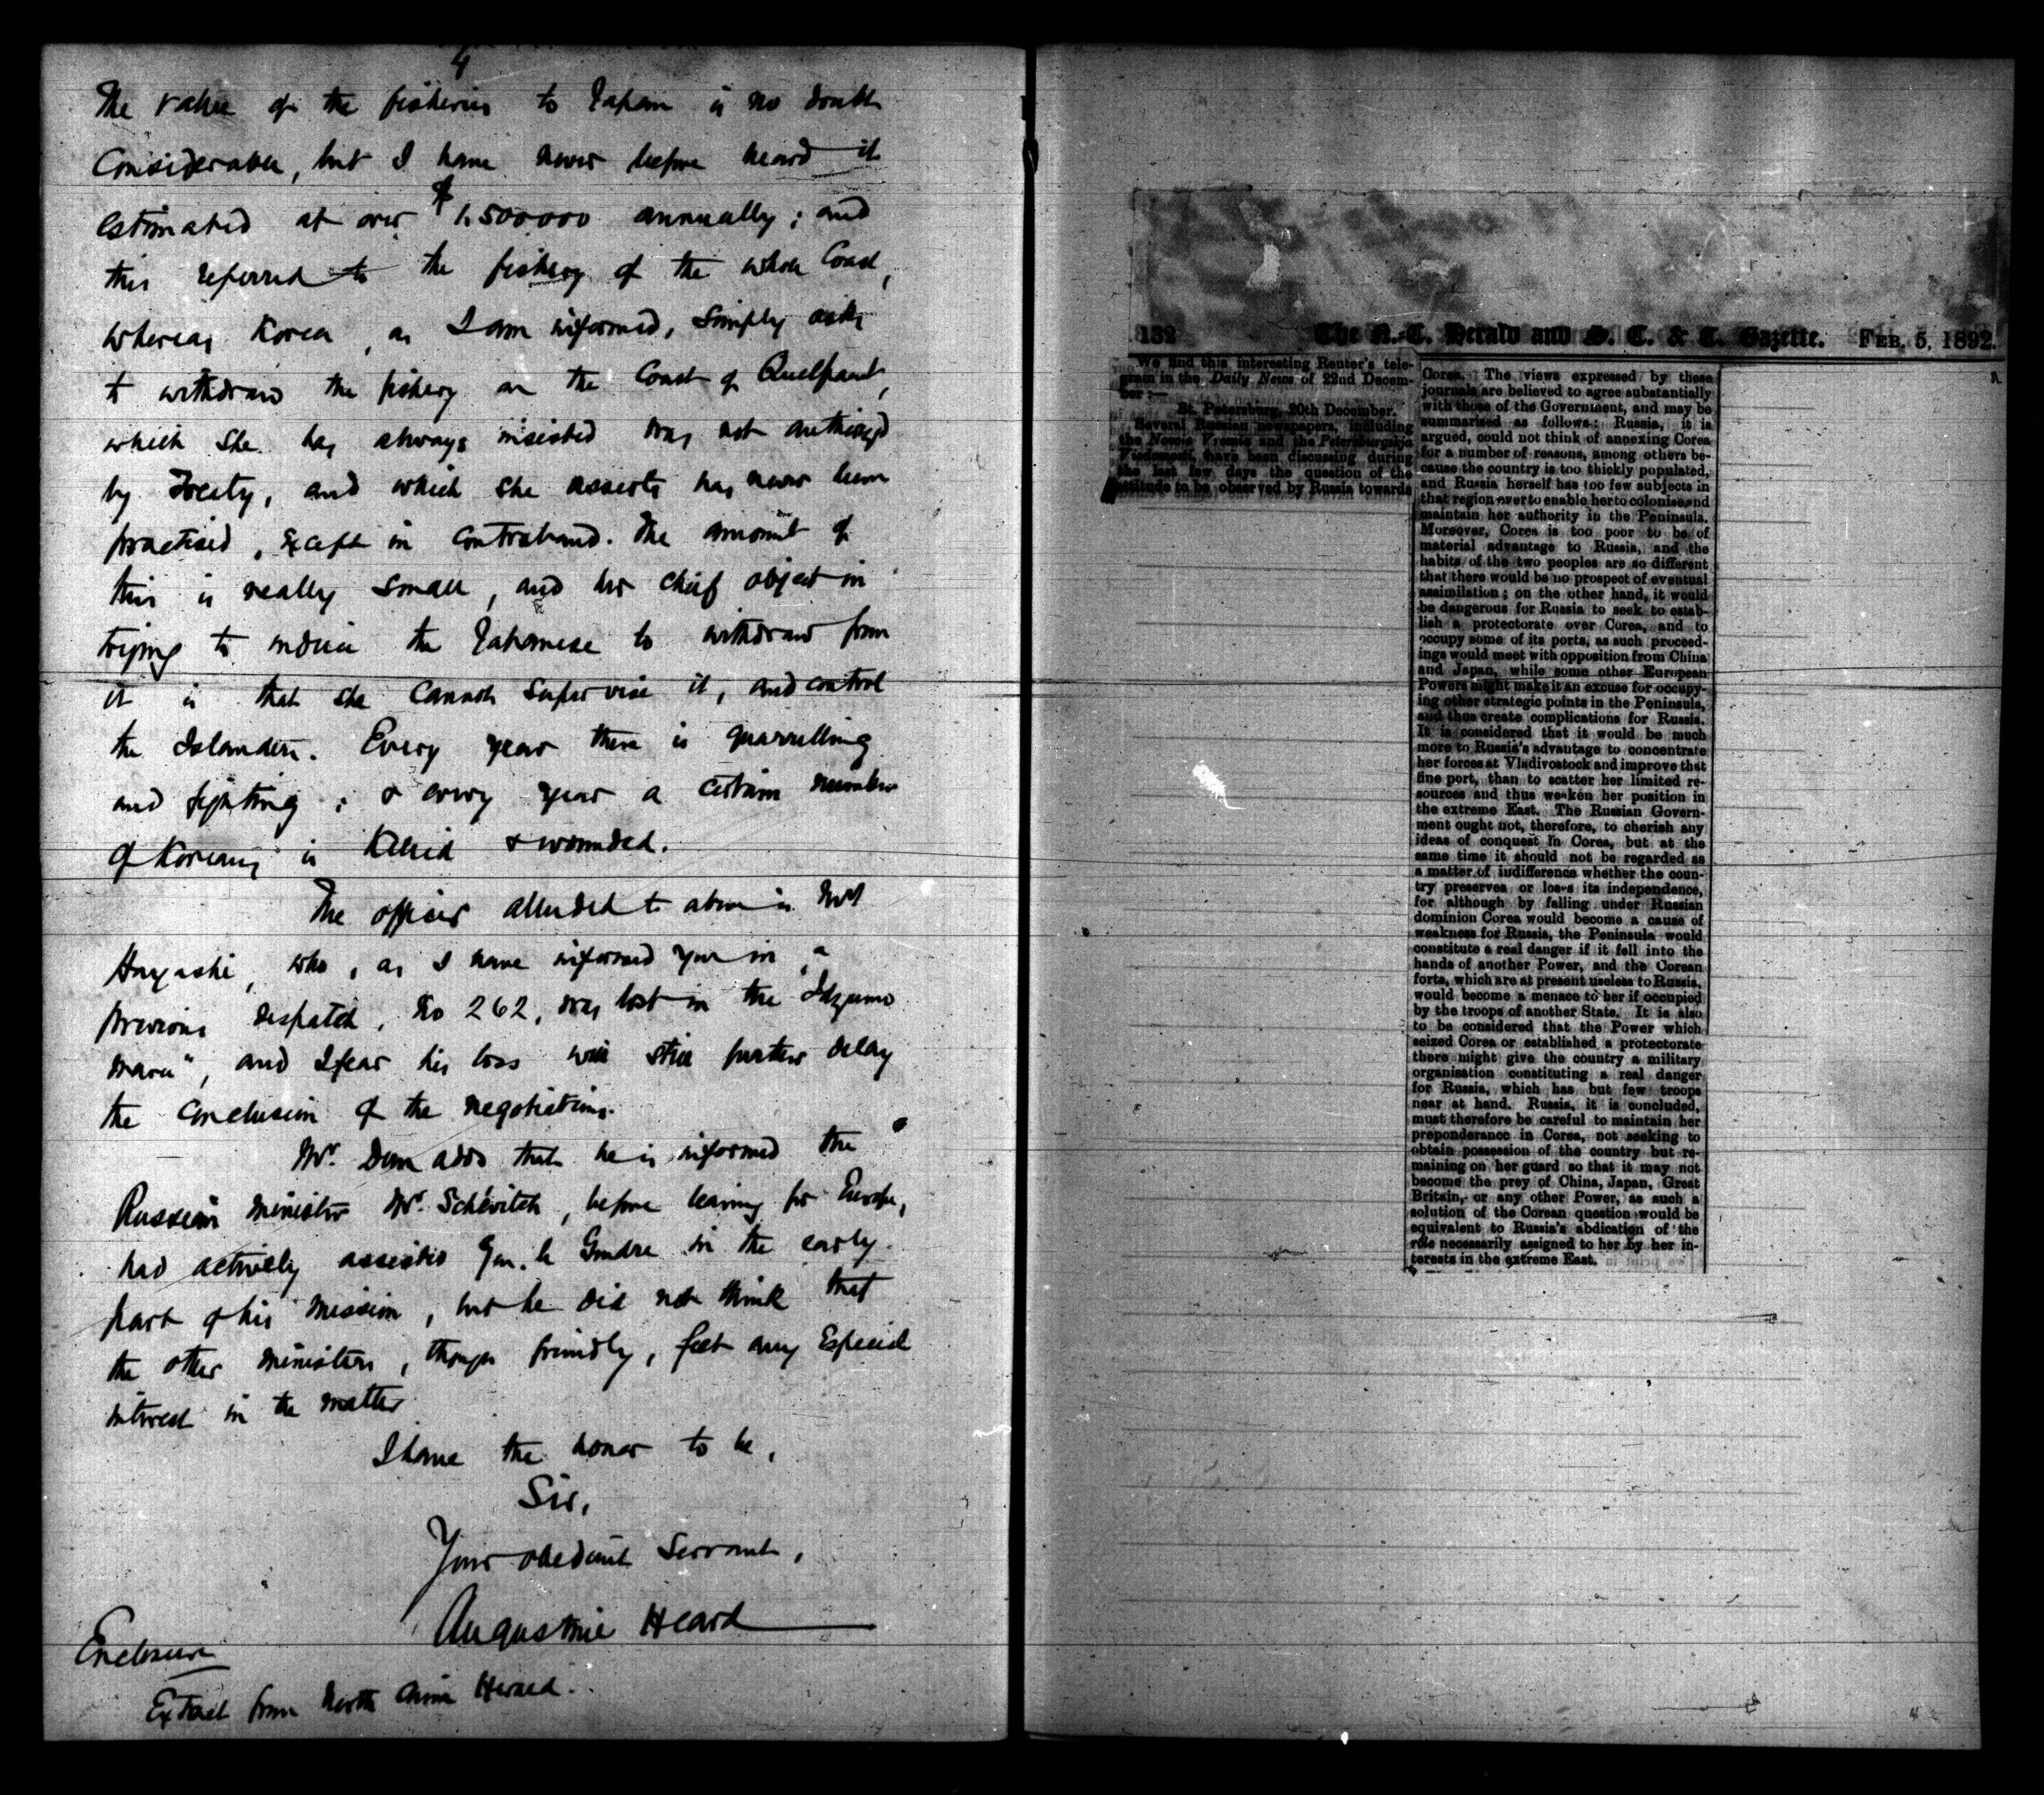 4
The value of the fisheries to Japan is no doubt
Considerable, but I have never before heard it
estimated at over $1,500000 annually; and
this referred to the fishery of the whole Coast,
whereas Korea, as I am informed, simply asks
to withdraw the fishery on the Coast of Quelpaert,
which she has always insisted was not authorized
by Treaty, and which she asserts has never been
practised, except in contraband. The amount of
this is really small, and her chief object in
trying to induce the Japanese to withdraw from
it is that she cannot supervise it, and control
the Islanders. Every year there is quarrelling
and fighting; & every year a certain number
of Koreans is Killed & wounded.
The officer alluded to above is Mr
Hayashi, who, as I have informed you in a
previous despatch, No 262, was lost in the "Idzumo
maru", and I fear his loss will still further delay
the conclusion of the negotiations.
Mr. Dun adds that he is informed the
Russian Minister Mr. Schévitch, before leaving for Europe,
had actively assisted Gen. le Gendre in the early
part of his mission, but he did not think that
the other ministers, though friendly, felt any Especial
interest in the matter
I have the honor to be,
Sir,
Your obedient Servant,
Augustine Heard
Enclosure
Extract from North China Herald.
132 The N.-C. Herald and S. C. & C. Gazette. FEB. 5, 1892.
We find this interesting Reuter's tele-
gram in the Daily News of 22nd Decem-
ber :—
St. Petersburg, 20th December.
Several Russian newspapers, including
the Novoie Vremie and the Petersburgskja
Viedomosti, have been discussing during
the last few days the question of the
attitude to be observed by Russia towards
Corea. The views expressed by these
journals are believed to agree substantially
with those of the Government, and may be
summarised as follows: Russia, it is
argued, could not think of annexing Corea
for a number of reasons, among others be-
cause the country is too thickly populated,
and Russia herself has too few subjects in
that region ever to enable her to colonise and
maintain her authority in the Peninsula.
Moreover, Corea is too poor to be of
material advantage to Russia, and the
habits of the two peoples are so different
that there would be no prospect of eventual
assimilation; on the other hand, it would
be dangerous for Russia to seek to estab-
lish a protectorate over Corea, and to
occupy some of its ports, as such proceed-
ings would meet with opposition from China
and Japan, while some other European
Powers might make it an excuse for occupy-
ing other strategic points in the Peninsula,
and thus create complications for Russia.
It is considered that it would be much
more to Russia's advantage to concentrate
her forces at Vladivostock and improve that
fine port, than to scatter her limited re-
sources and thus weaken her position in
the extreme East. The Russian Govern-
ment ought not, therefore, to cherish any
ideas of conquest in Corea, but at the
same time it should not be regarded as
a matter of indifference whether the coun-
try preserves or loses its independence,
for although by falling under Russian
dominion Corea would become a cause of
weakness for Russia, the Peninsula would
constitute a real danger if it fell into the
hands of another Power, and the Corean
forts, which are at present useless to Russia,
would become a menace to her if occupied
by the troops of another State. It is also
to be considered that the Power which
seized Corea or established a protectorate
there might give the country a military
organisation constituting a real danger
for Russia, which has but few troops
near at hand. Russia, it is concluded,
must therefore be careful to maintain her
preponderance in Corea, not seeking to
obtain possession of the country but re-
maining on her guard so that it may not
become the prey of China, Japan, Great
Britain, or any other Power, as such a
solution of the Corean question would be
equivalent to Russia's abdication of the
rôle necessarily assigned to her by her in-
terests in the extreme East.